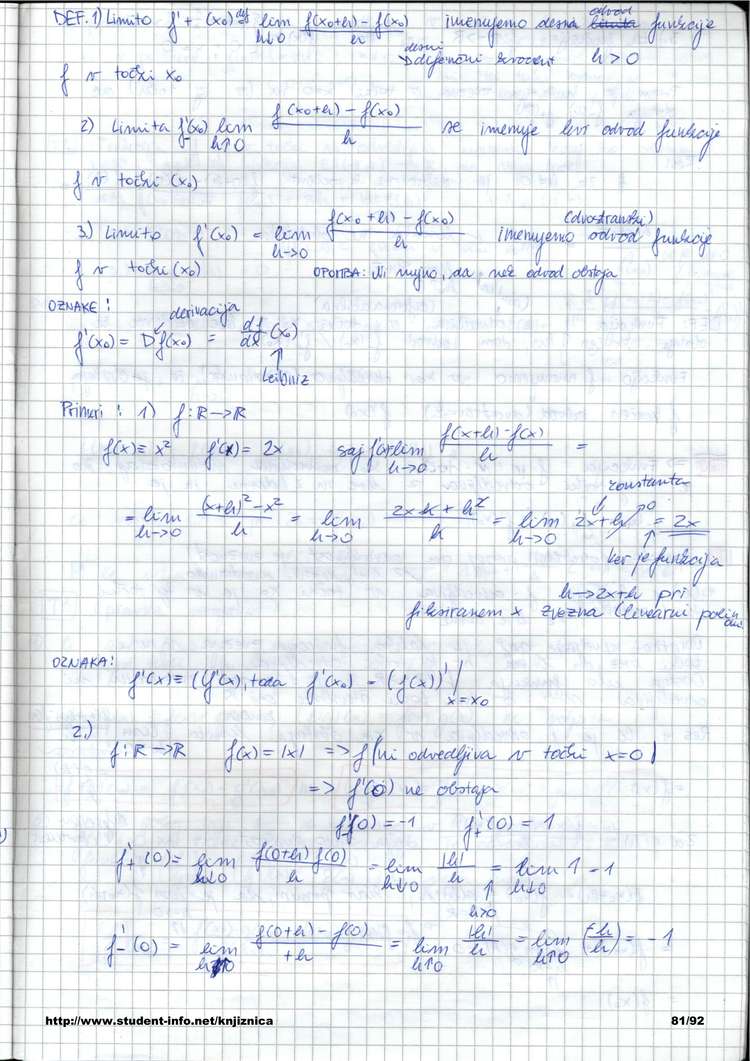 DEF. 1) Limito f'+(x₀) def= lim h↓0 (f(x₀+h) - f(x₀))/h imenujemo desna odvod funkcije
desni diferenčni kvocient h>0
f v točki x₀
2) Limita f'₋(x₀) lim h↑0 (f(x₀+h) - f(x₀))/h se imenuje levi odvod funkcije
f v točki (x₀)
3.) Limito f'(x₀) = lim h→0 (f(x₀+h) - f(x₀))/h imenujemo (dvostranski) odvod funkcije
f v točki (x₀) OPOMBA: Ni nujno, da nek odvod obstaja
OZNAKE:
derivacija
f'(x₀) = Df(x₀) = df/dx (x₀)
Leibniz
Primeri: 1) f: ℝ→ℝ
f(x) = x² f'(x) = 2x saj f'(x)=lim h→0 (f(x+h)-f(x))/h =
konstanta
= lim h→0 ((x+h)²-x²)/h = lim h→0 (2xh+h²)/h = lim h→0 2x+h →0 = 2x
ker je funkcija
h→2x+h pri
fiksiranem x zvezna (linearni
OZNAKA:
f'(x) ≡ (f(x))', toda f'(x₀) = (f(x))' | x=x₀
2.)
f: ℝ→ℝ f(x) = |x| => f (ni odvedljiva v točki x=0)
=> f'(0) ne obstaja
f'₋(0) = -1 f'₊(0) = 1
f'₊(0) = lim h↓0 (f(0+h) f(0))/h = lim h↓0 |h|/h = lim h↓0 1 - 1
h>0
f'₋(0) = lim h↑0 (f(0+h) - f(0))/+h = lim h↑0 |h|/h = lim h↑0 (-h/h) = -1
http://www.student-info.net/knjiznica 81/92